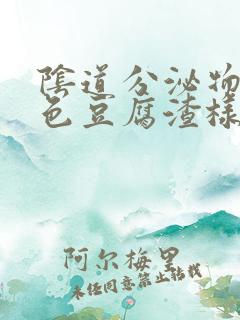 陰道分泌物
色豆腐渣樣
阿尔梅里
未经同意禁止转载